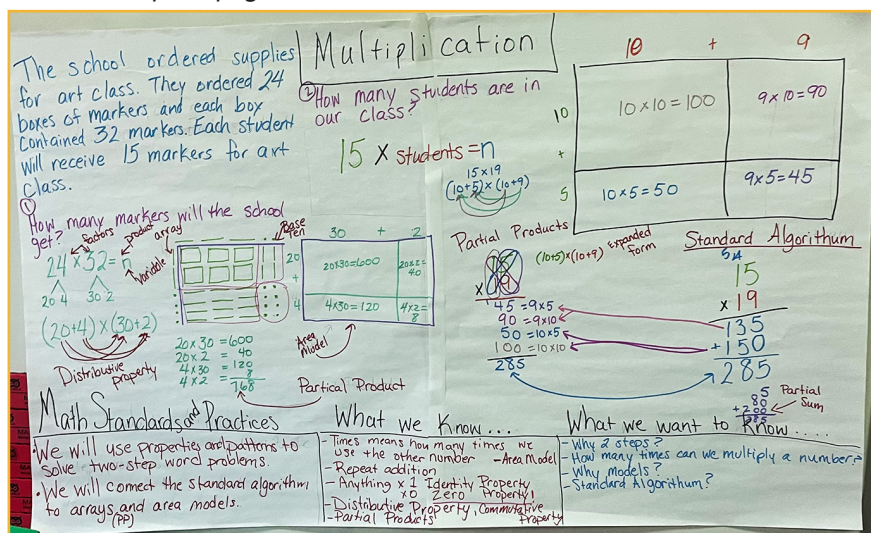 Multiplication
The school ordered supplies
for art class. They ordered 24
boxes of markers and each box
contained 32 markers. Each student
will receive 15 markers for art
class.
① How many markers will the school
get?
factors
product
array
24 x 32 = n
variable
20 4 30 2
(20+4) x (30+2)
Distributive
property
Base
Ten
30 + 2
20
+
4
20x30=600
20x2=
40
4x30=120
4x2=
8
Area
Model
20x30 = 600
20x2 = 40
4x30 = 120
4x2 = 8
768
Partical Product
② How many students are in
our class?
15 x students = n
15x19
(10+5)x(10+9)
10 + 9
10
+
5
10x10=100
9x10=90
10x5=50
9x5=45
Partial Products
(10+5)x(10+9) Expanded
form
x
45 =9x5
90 =9x10
50 =10x5
100 =10x10
285
Standard Algorithum
15
x 19
135
+150
285
85
80
+200
Partial
Sum
Math Standards and Practices
• We will use properties and patterns to
solve two-step word problems.
• We will connect the standard algorithm
to arrays and area models.
(PP)
What we Know...
- Times means how many times we
use the other number - Area Model
- Repeat addition
- Anything x 1 Identity Property
x0 Zero Property!
- Distributive Property, Commutative
Property
- Partial Products
What we want to Know....
- Why 2 steps?
- How many times can we multiply a number?
- Why models?
- Standard Algorithum?